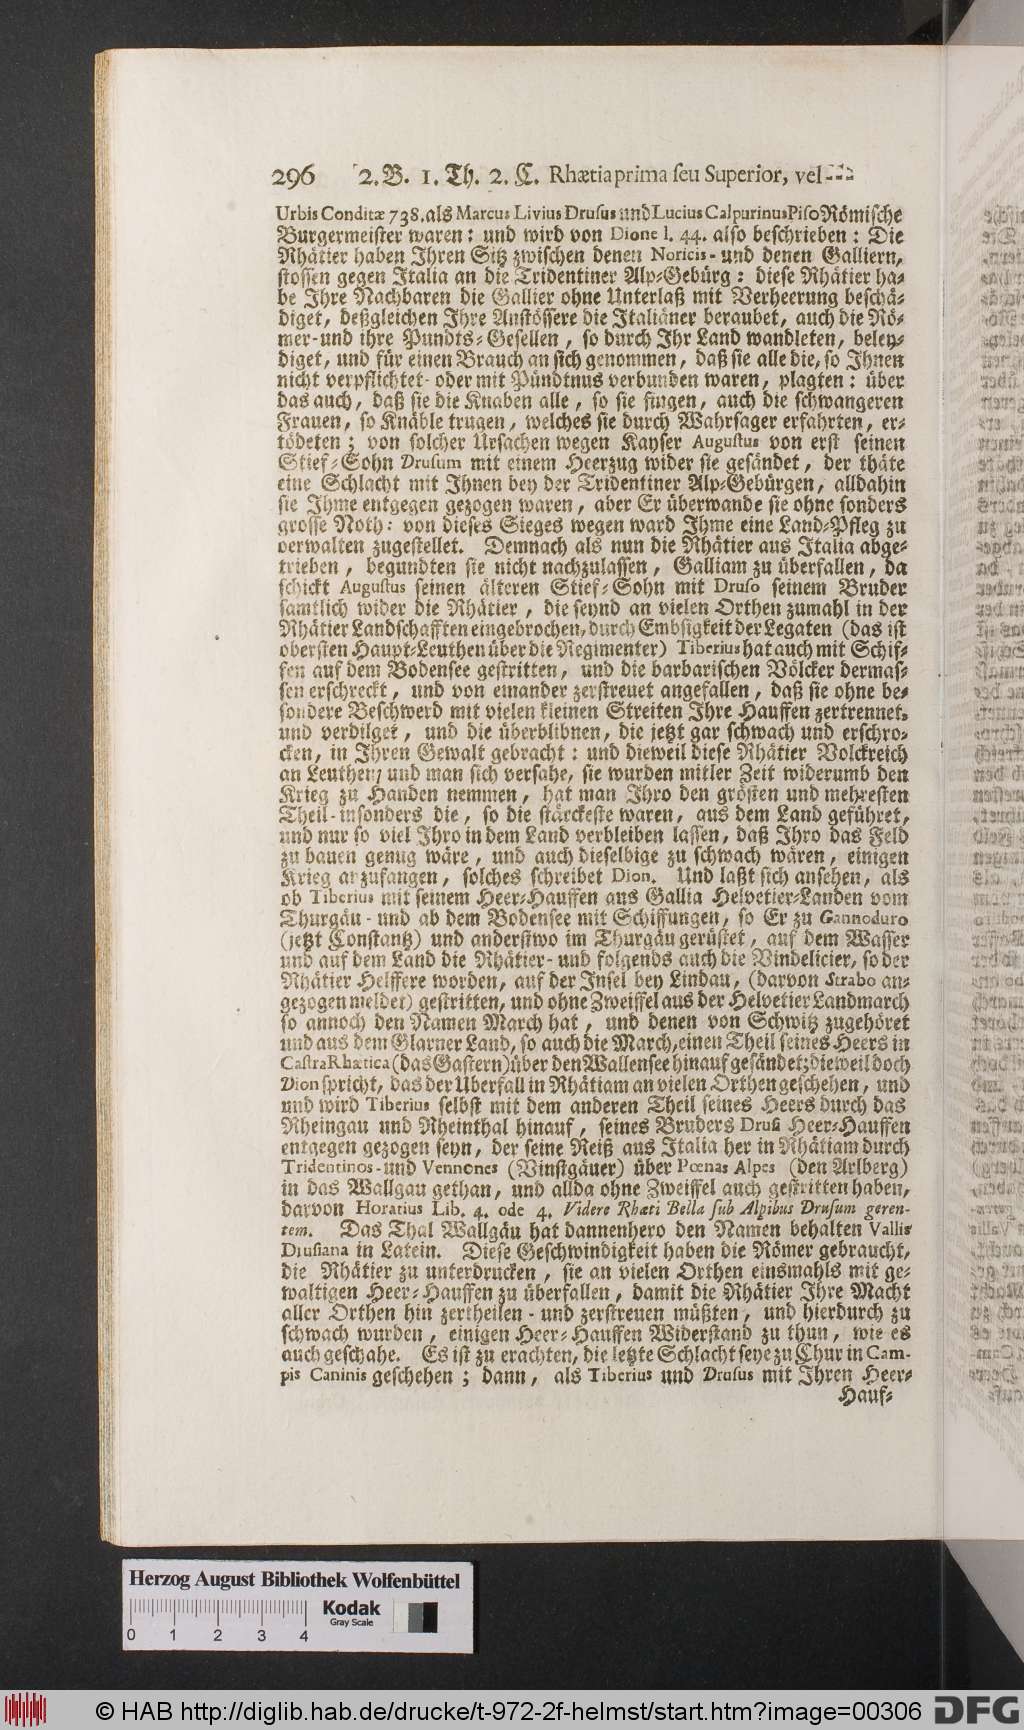 296 2. B. 1. Th. 2. C. Rhætia prima seu Superior, vel ---
Urbis Conditæ 738. als Marcus Livius Drusus und Lucius Calpurinus Piso Römische
Burgermeister waren: und wird von Dione l. 44. also beschrieben: Die
Rhätier haben Ihren Sitz zwischen denen Noricis- und denen Galliern,
stossen gegen Italia an die Tridentiner Alp-Gebürg: diese Rhätier ha-
be Ihre Nachbaren die Gallier ohne Unterlaß mit Verheerung beschä-
diget, deßgleichen Ihre Anstössere die Italiäner beraubet, auch die Rö-
mer- und ihre Pundts-Gesellen, so durch Ihr Land wandleten, beley-
diget, und für einen Brauch an sich genommen, daß sie alle die, so Ihnen
nicht verpflichtet- oder mit Pündtnus verbunden waren, plagten: über
das auch, daß sie die Knaben alle, so sie fingen, auch die schwangeren
Frauen, so Knäble trugen, welches sie durch Wahrsager erfahrten, er-
tödeten; von solcher Ursachen wegen Kayser Augustus von erst seinen
Stief-Sohn Drusum mit einem Heerzug wider sie gesändet, der thäte
eine Schlacht mit Ihnen bey der Tridentiner Alp-Gebürgen, alldahin
sie Ihme entgegen gezogen waren, aber Er überwande sie ohne sonders
grosse Noth: von dieses Sieges wegen ward Ihme eine Land-Pfleg zu
verwalten zugestellet. Demnach als nun die Rhätier aus Italia abge-
trieben, begundten sie nicht nachzulassen, Galliam zu überfallen, da
schickt Augustus seinen älteren Stief-Sohn mit Druso seinem Bruder
samtlich wider die Rhätier, die seynd an vielen Orthen zumahl in der
Rhätier Landschafften eingebrochen, durch Embsigkeit der Legaten (das ist
obersten Haupt-Leuthen über die Regimenter) Tiberius hat auch mit Schif-
fen auf dem Bodensee gestritten, und die barbarischen Völcker dermas-
sen erschreckt, und von einander zerstreuet angefallen, daß sie ohne be-
sondere Beschwerd mit vielen kleinen Streiten Ihre Hauffen zertrennet,
und verdilget, und die überblibnen, die jetzt gar schwach und erschro-
cken, in Ihren Gewalt gebracht: und dieweil diese Rhätier Volckreich
an Leuthen, und man sich versahe, sie wurden mitler Zeit widerumb den
Krieg zu Handen nemmen, hat man Ihro den grösten und mehresten
Theil- insonders die, so die stärckeste waren, aus dem Land geführet,
und nur so viel Ihro in dem Land verbleiben lassen, daß Ihro das Feld
zu bauen genug wäre, und auch dieselbige zu schwach wären, einigen
Krieg anzufangen, solches schreibet Dion. Und laßt sich ansehen, als
ob Tiberius mit seinem Heer-Hauffen aus Gallia Helvetier-Landen vom
Thurgäu- und ab dem Bodensee mit Schiffungen, so Er zu Gannoduro
(jetzt Constantz) und anderstwo im Thurgäu gerüstet, auf dem Wasser
und auf dem Land die Rhätier- und folgends auch die Vindelicier, so der
Rhätier Helffere worden, auf der Insel bey Lindau, (darvon Strabo an-
gezogen meldet) gestritten, und ohne Zweiffel aus der Helvetier Landmarch
so annoch den Namen March hat, und denen von Schwitz zugehöret
und aus dem Glarner Land, so auch die March, einen Theil seines Heers in
Castra Rhætica (das Gastern) über den Wallensee hinauf gesändet; dieweil doch
Dion spricht, das der Uberfall in Rhätiam an vielen Orthen geschehen, und
und wird Tiberius selbst mit dem anderen Theil seines Heers durch das
Rheingau und Rheinthal hinauf, seines Bruders Drusi Heer-Hauffen
entgegen gezogen seyn, der seine Reiß aus Italia her in Rhätiam durch
Tridentinos- und Vennones (Vinstgäuer) über Pœnas Alpes (den Arlberg)
in das Wallgau gethan, und allda ohne Zweiffel auch gestritten haben,
darvon Horatius Lib. 4. ode 4. Videre Rhæti Bella sub Alpibus Drusum geren-
tem. Das Thal Wallgäu hat dannenhero den Namen behalten Vallis
Drusiana in Latein. Diese Geschwindigkeit haben die Römer gebraucht,
die Rhätier zu unterdrucken, sie an vielen Orthen einsmahls mit ge-
waltigen Heer-Hauffen zu überfallen, damit die Rhätier Ihre Macht
aller Orthen hin zertheilen- und zerstreuen müßten, und hierdurch zu
schwach wurden, einigen Heer-Hauffen Widerstand zu thun, wie es
auch geschahe. Es ist zu erachten, die letzte Schlacht seye zu Chur in Cam-
pis Caninis geschehen; dann, als Tiberius und Drusus mit Ihren Heer-
Hauf-
Herzog August Bibliothek Wolfenbüttel
Kodak
Gray Scale
0 1 2 3 4
© HAB http://diglib.hab.de/drucke/t-972-2f-helmst/start.htm?image=00306
DFG